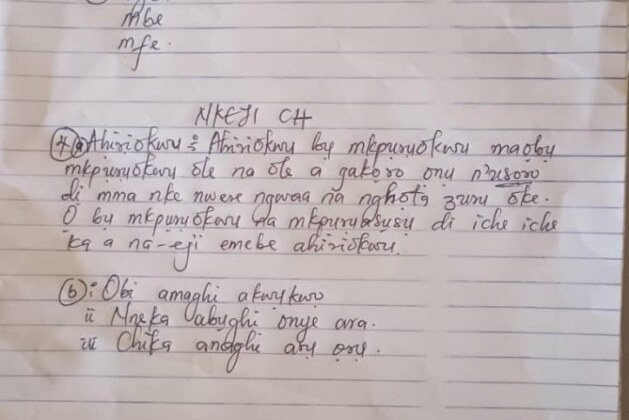 mbe
mfe.
NKEJI CH
4 (a) Ahiriokwu : Ahiriokwu bụ mkpụrụokwu maọbụ
mkpụrụokwu ole na ole a gakọrọ ọnụ n'usoro
di mma nke nwere ngwaa na nghọta zuru oke.
O bụ mkpụrụokwu na mkpụrụasụsụ di iche iche
ka a na-eji emebe ahiriokwu.
(b) i Obi amaghi akwụkwọ
ii Nneka abụghi onye ara.
iii Chika anaghi arụ ọrụ.